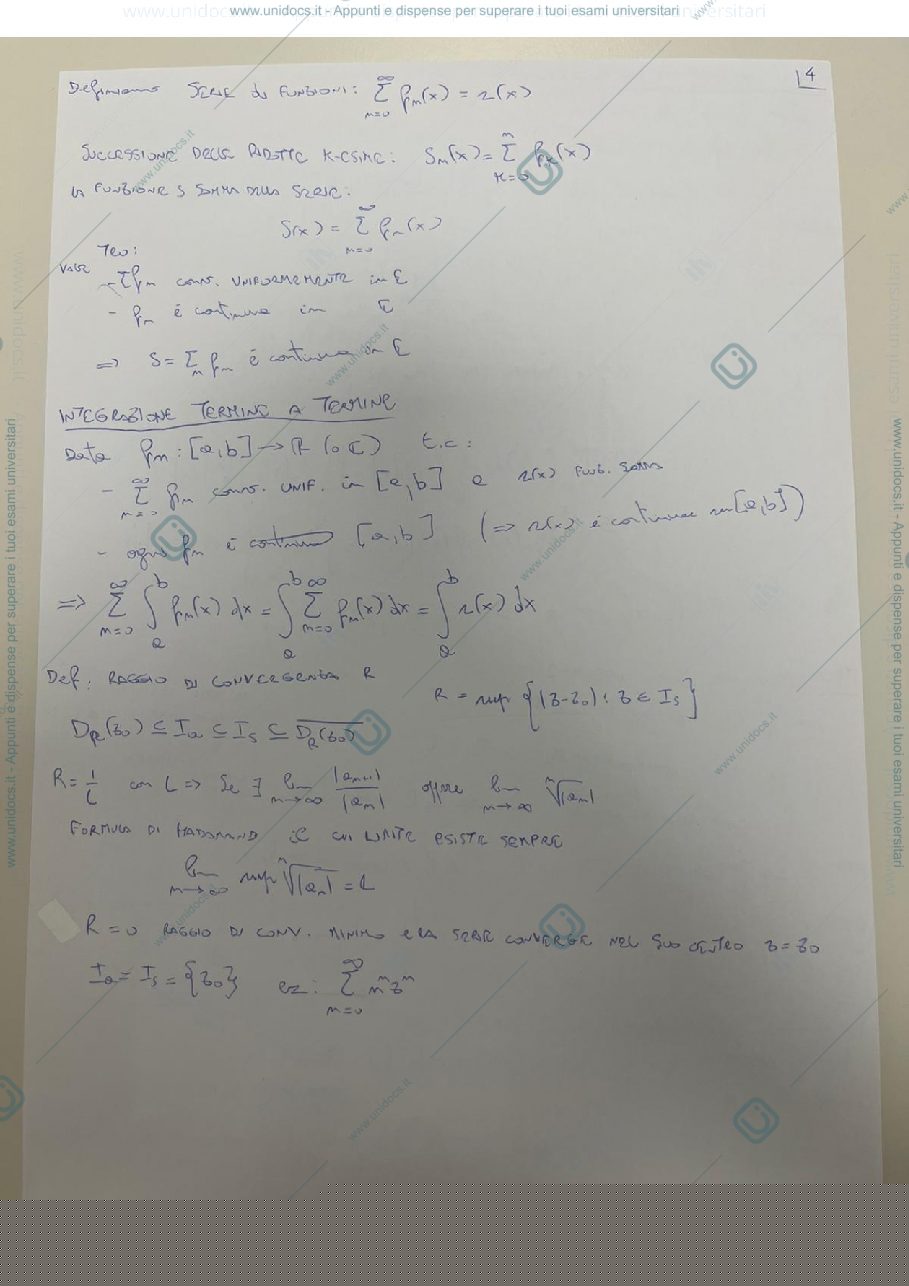 www.unidocs.it - Appunti e dispense per superare i tuoi esami universitari
4
Definiamo SERIE di FUNZIONI: ∑_{n=0}^{∞} fn(x) = s(x)
SUCCESSIONE DELLE RIDOTTE K-ESIME: Sn(x) = ∑_{k=0}^{n} fk(x)
la FUNZIONE S SOMMA DELLA SERIE:
S(x) = ∑_{n=0}^{∞} fn(x)
Teo:
- ∑fn conv. UNIFORMEMENTE in E
- fn è continua in E
=> S = ∑_n fn è continua in E
INTEGRAZIONE TERMINE A TERMINE
Data fn: [a,b] → R (o C) t.c:
- ∑_{n=0}^{∞} fn conv. UNIF. in [a,b] e s(x) FUNZ. SOMMA
- ogni fn è continua [a,b] (=> s(x) è continua su [a,b])
=> ∑_{n=0}^{∞} ∫_a^b fn(x) dx = ∫_a^b ∑_{n=0}^{∞} fn(x) dx = ∫_a^b s(x) dx
Def: RAGGIO DI CONVERGENZA R
R = sup {|z-z0| : z ∈ Is}
DR(z0) ⊆ Ia ⊆ Is ⊆ \overline{DR(z0)}
R = 1/L con L => Se ∃ lim_{n→∞} |an+1|/|an| oppure lim_{n→∞} ⁿ√|an|
FORMULA DI HADAMARD il CUI LIMITE ESISTE SEMPRE
lim_{n→∞} sup ⁿ√|an| = L
R = 0 RAGGIO DI CONV. MINIMO e LA SERIE CONVERGE NEL SUO CENTRO z = z0
Ia = Is = {z0} ez: ∑_{n=0}^{∞} nⁿzⁿ